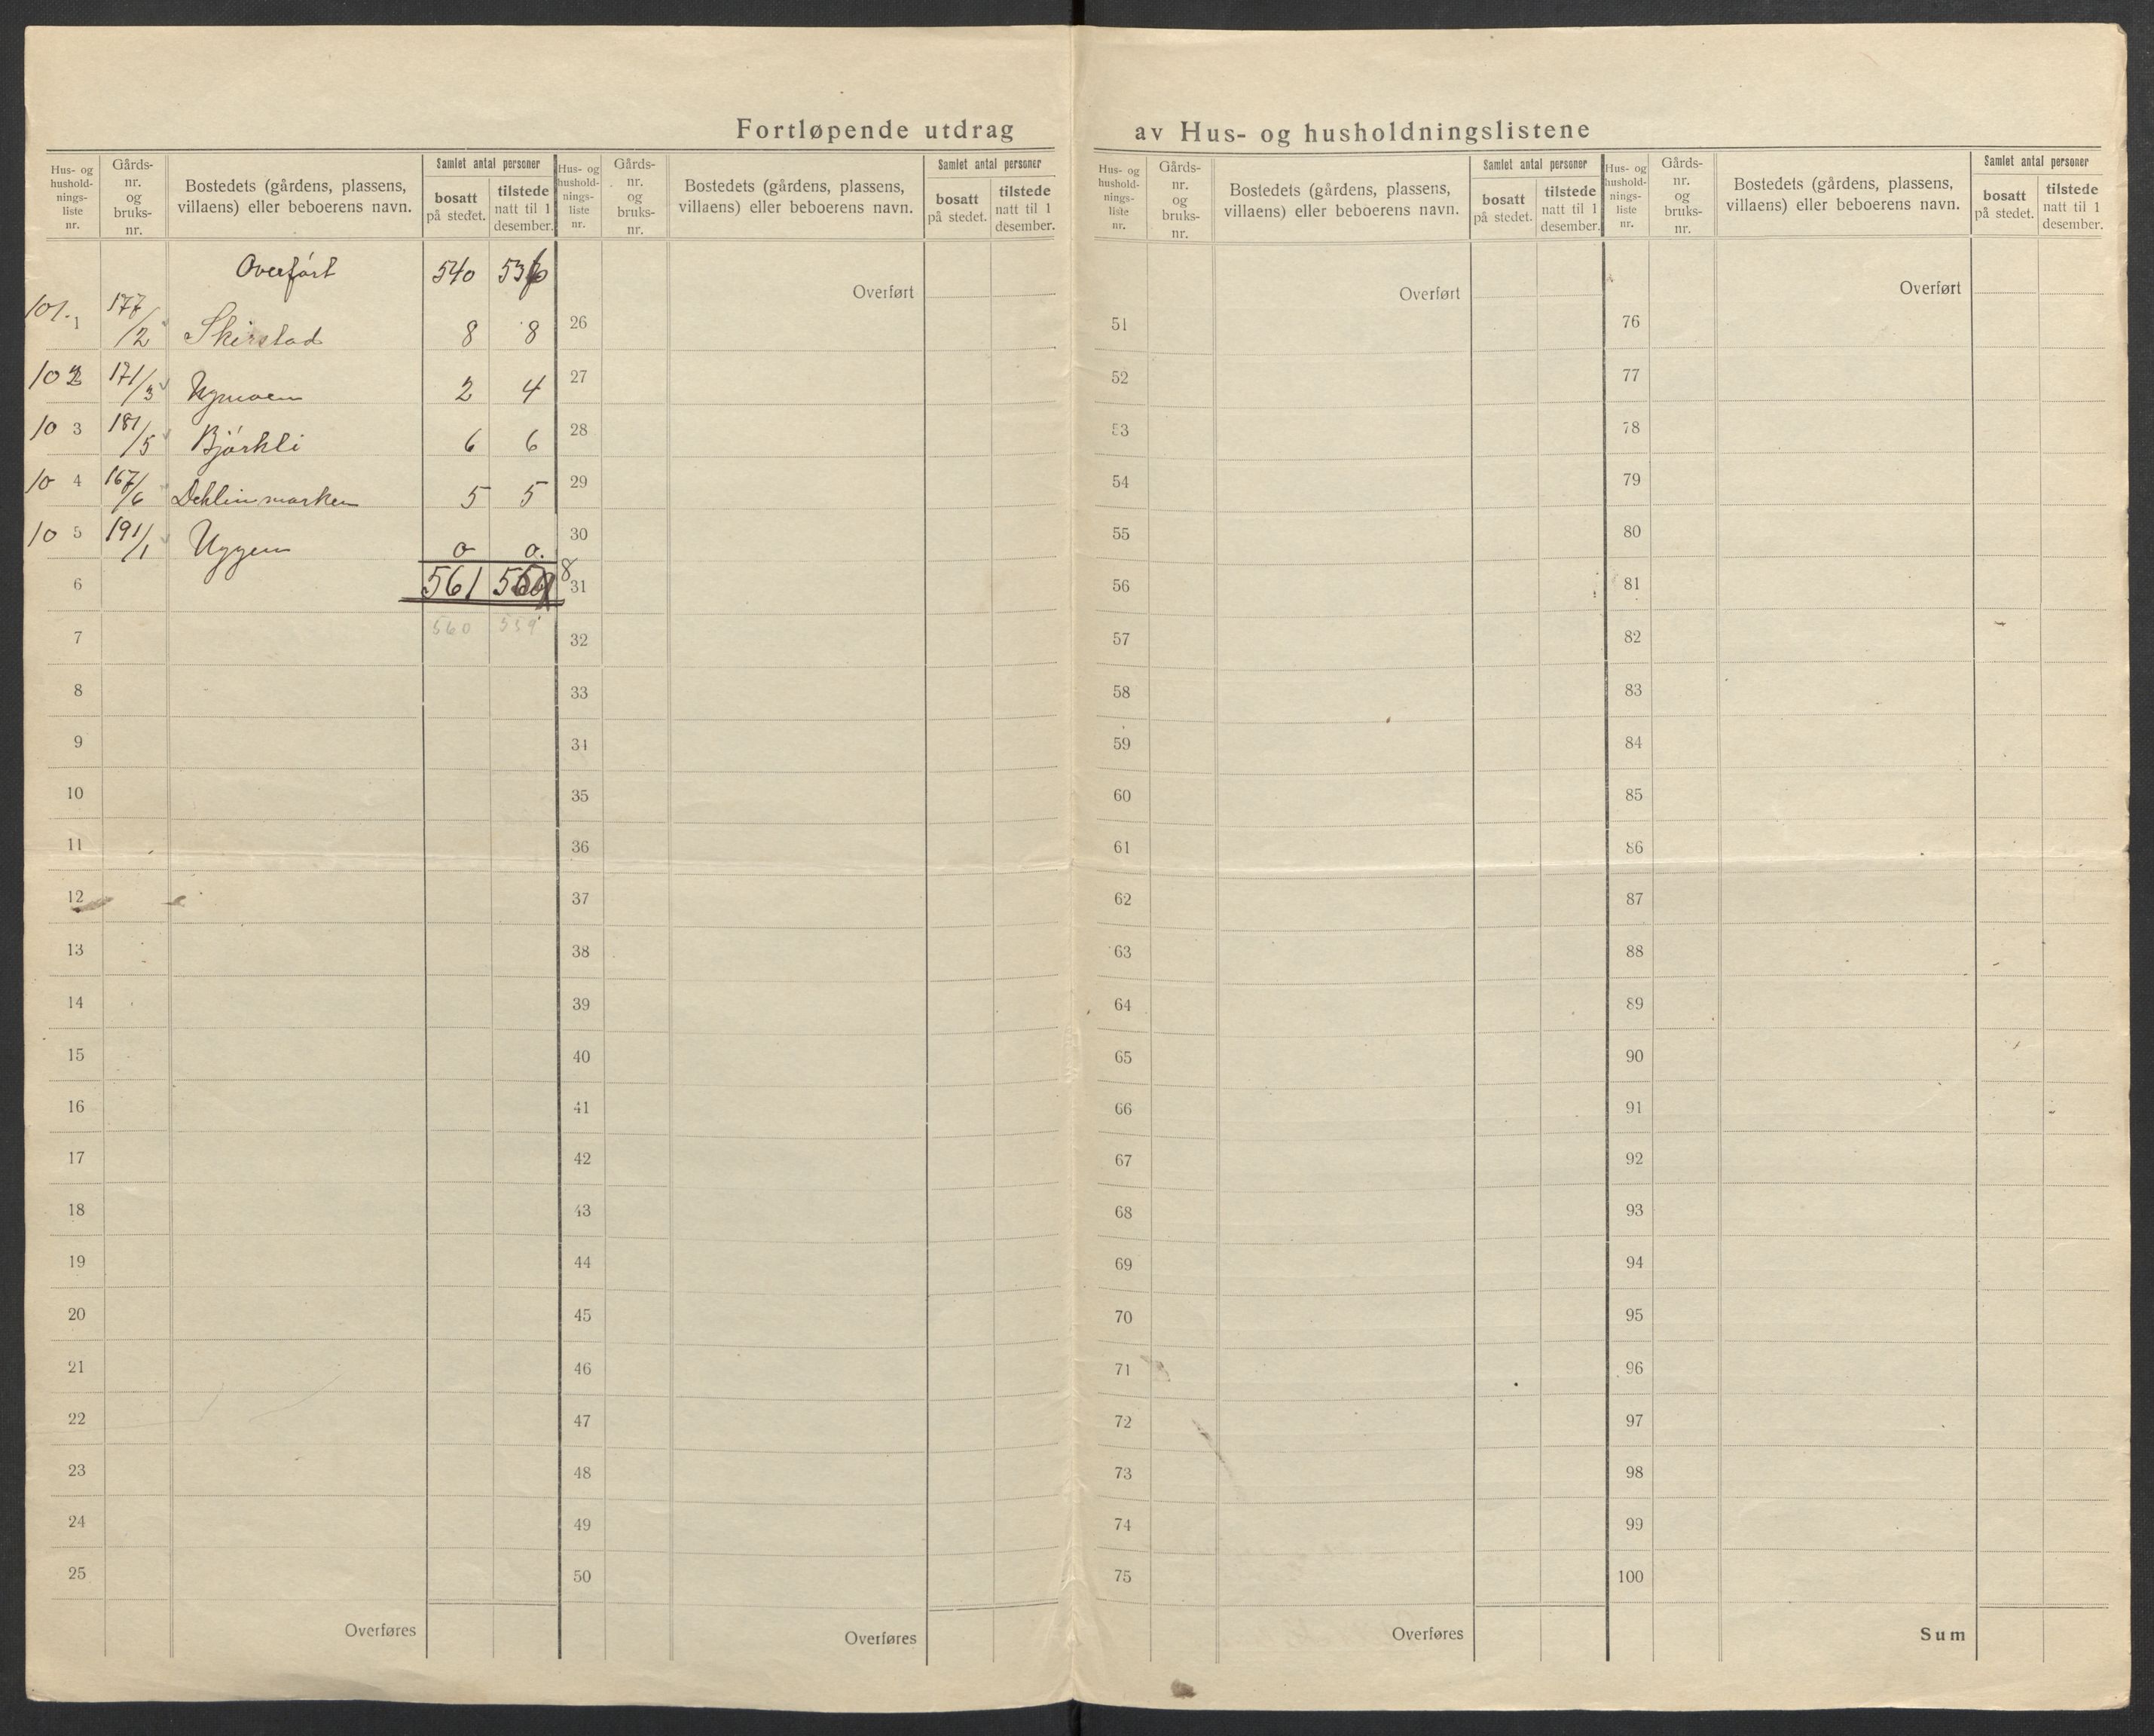 Fortløpende utdrag av Hus- og husholdningslistene
Hus- og hushold-nings-liste nr. Gårds-nr. og bruks-nr. Bostedets (gårdens, plassens, villaens) eller beboerens navn. Samlet antal personer bosatt på stedet. tilstede natt til 1 desember.
Overført 540 536
101. 1 177/2 Skirstad 8 8
102 171/3 2 4
10 3 181/5 Bjørkli 6 6
10 4 167/6 Dehlinmarken 5 5
10 5 191/1 Uggen 0 0.
6 561 8
7 560 559
8
9
10
11
12
13
14
15
16
17
18
19
20
21
22
23
24
25
Overføres
Hus- og hushold-nings-liste nr. Gårds-nr. og bruks-nr. Bostedets (gårdens, plassens, villaens) eller beboerens navn. Samlet antal personer bosatt på stedet. tilstede natt til 1 desember.
Overført
26
27
28
29
30
31
32
33
34
35
36
37
38
39
40
41
42
43
44
45
46
47
48
49
50
Overføres
Hus- og hushold-nings-liste nr. Gårds-nr. og bruks-nr. Bostedets (gårdens, plassens, villaens) eller beboerens navn. Samlet antal personer bosatt på stedet. tilstede natt til 1 desember.
Overført
51
52
53
54
55
56
57
58
59
60
61
62
63
64
65
66
67
68
69
70
71
72
73
74
75
Overføres
Hus- og hushold-nings-liste nr. Gårds-nr. og bruks-nr. Bostedets (gårdens, plassens, villaens) eller beboerens navn. Samlet antal personer bosatt på stedet. tilstede natt til 1 desember.
Overført
76
77
78
79
80
81
82
83
84
85
86
87
88
89
90
91
92
93
94
95
96
97
98
99
100
Sum